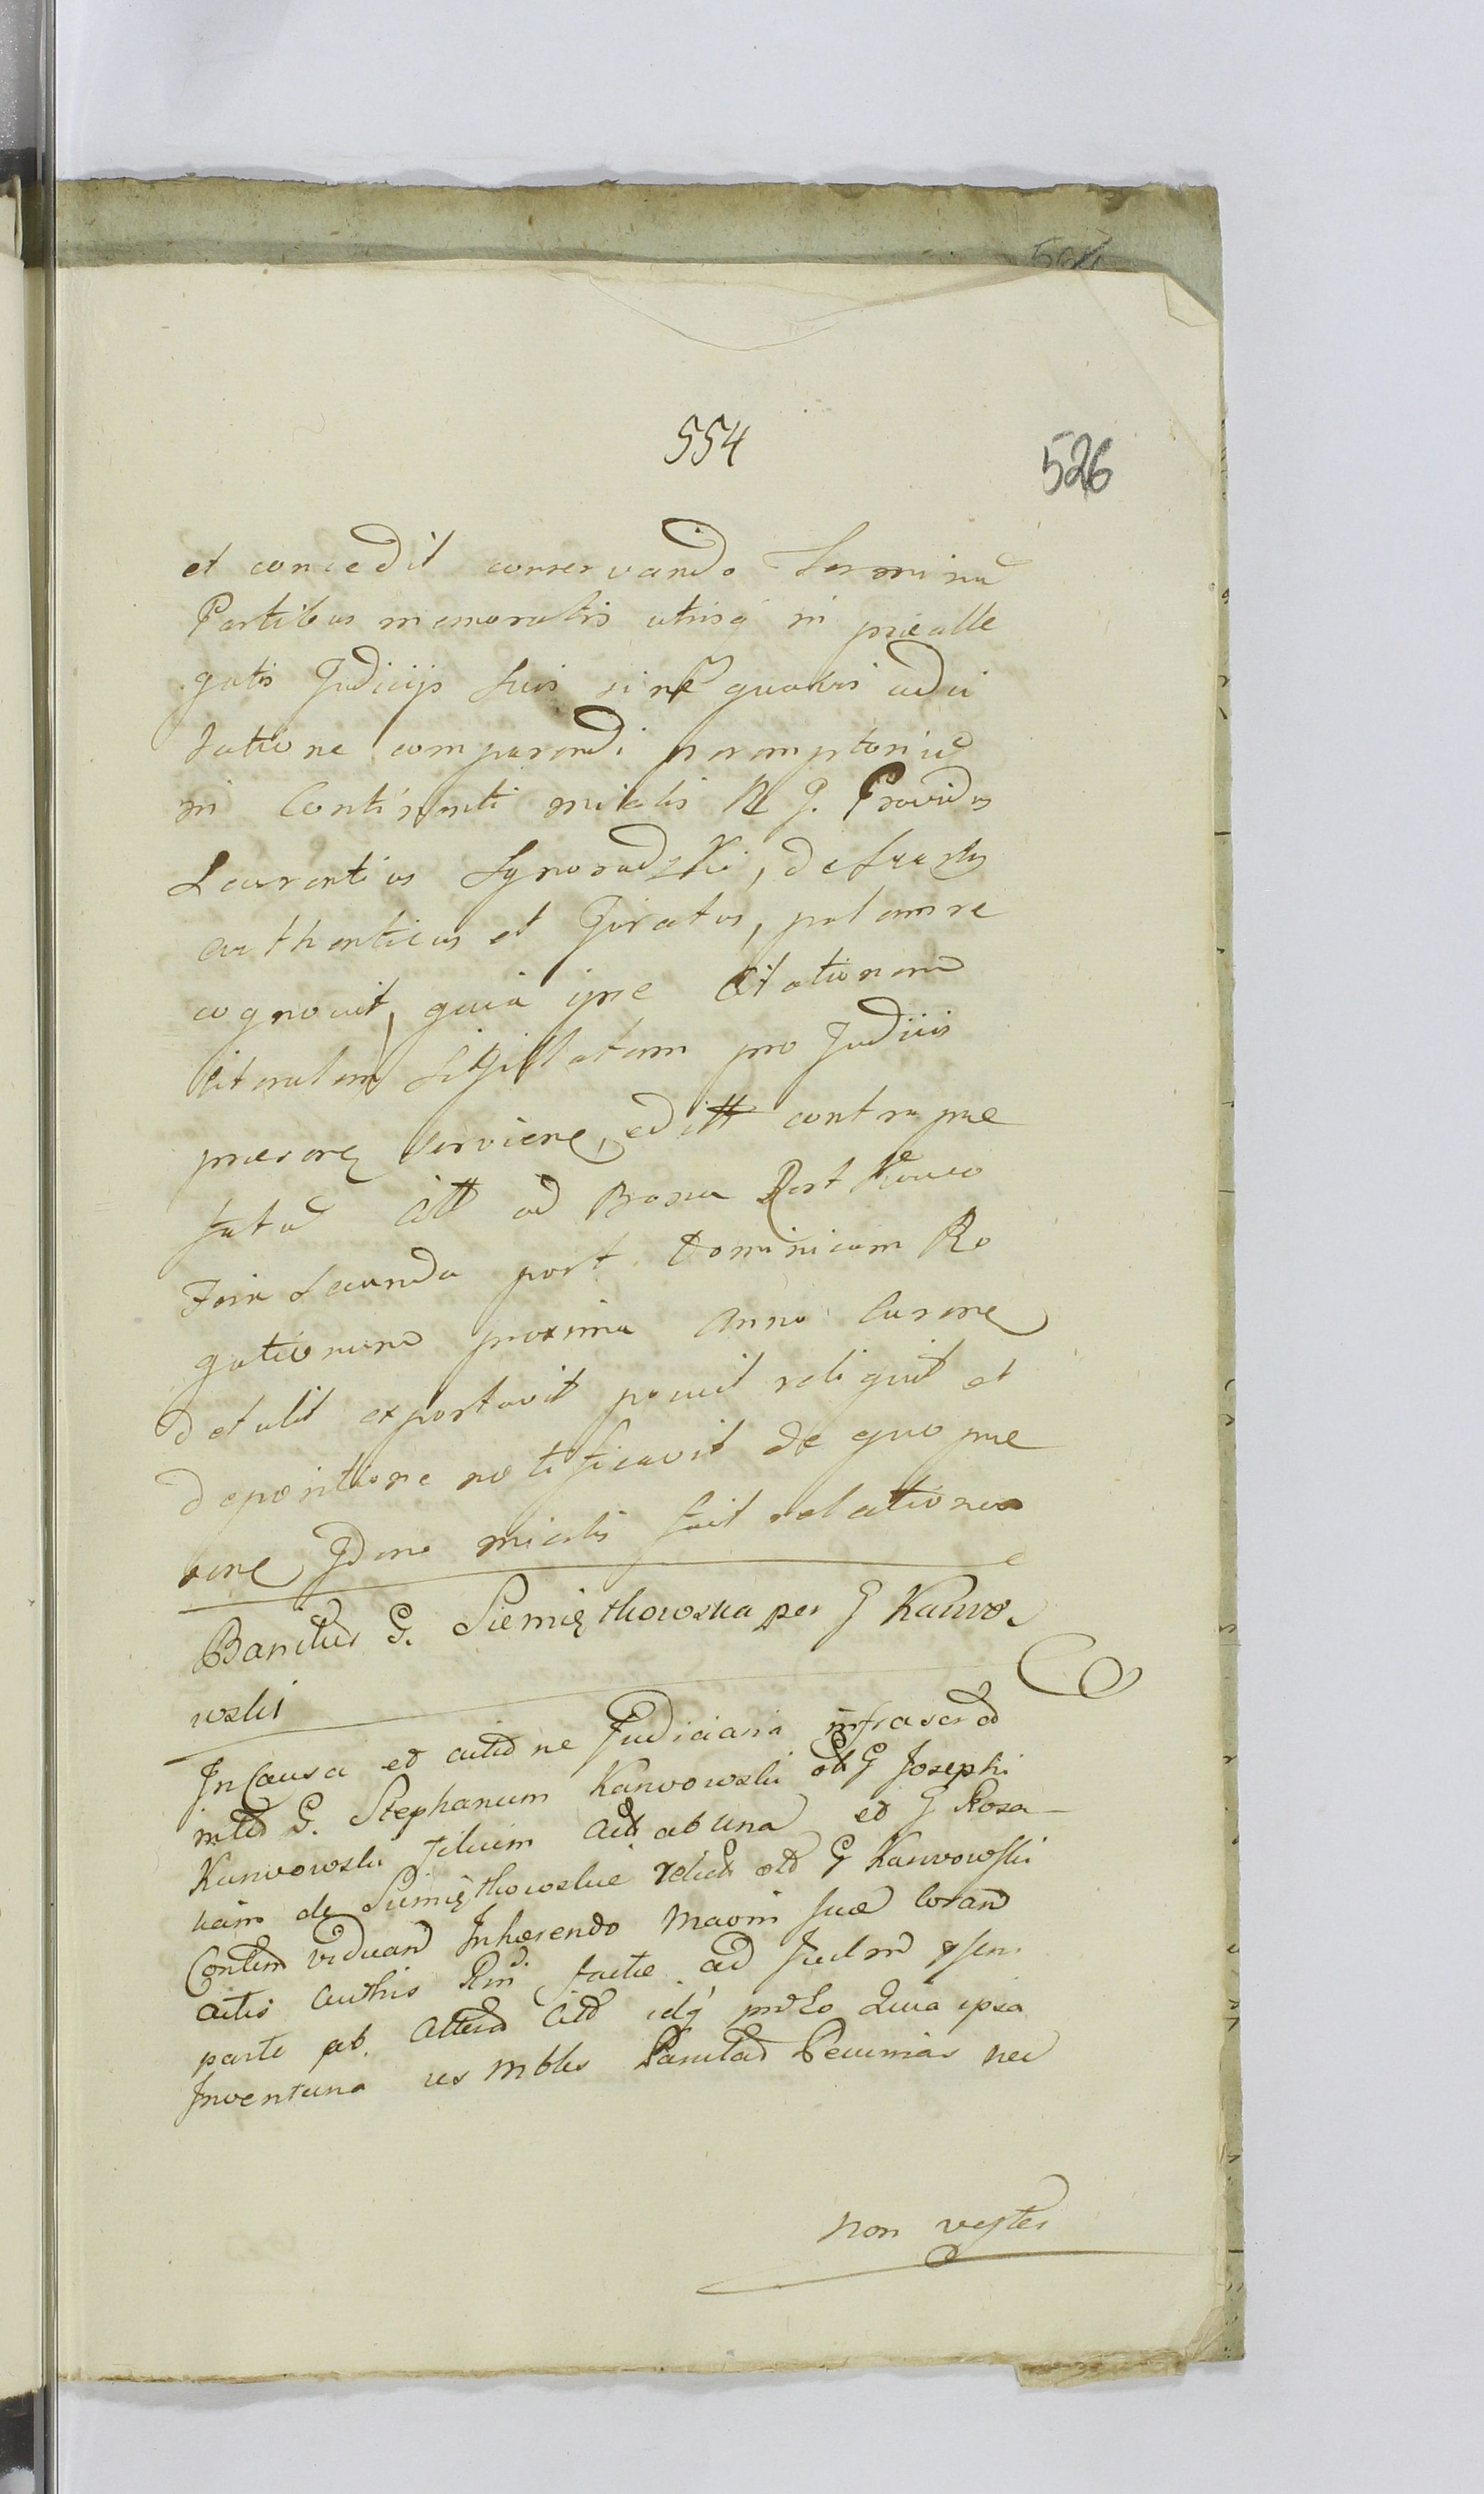 554
526
et concedit conservando Terminū
Partibus memoratis utrisq in prealle
gatis Judicijs suis sine quavis adci
tatione comparendi peremptoriū
in Continenti minlis R G. Providus
Laurentius Synoradzki, de
authenticus et Juratus, palam re
cognovit, quia ipse Citationem
literalem Sigillatam pro Judiciis
praesens serviens, editt contra prae
fatū Citt ad Bona Rostkowo
Feria Secunda post Dominicam Ro
gationum proxima anno Curren
detulit exportavit posuit reliquit et
depositione notificavit de quo prae
sens Idem mielis fecit relationem
Banitus G. Siemiętkowska per G Karwo
wski
In Causa et actione Judiciaria infrascrod
inter G. Stephanum Karwowski olt G Josephi
Karwowski filium Act ab una et G Rosa
liam de Siemiętkowskie relict olt G Karwowski
Contem viduam Inhaerendo Maoni suae coram
actis authis Rm factae ad Jud
parte ab altera Citt idq pretto Quia ipsa
Inventuna res mbles Pecunias nec
non vestes